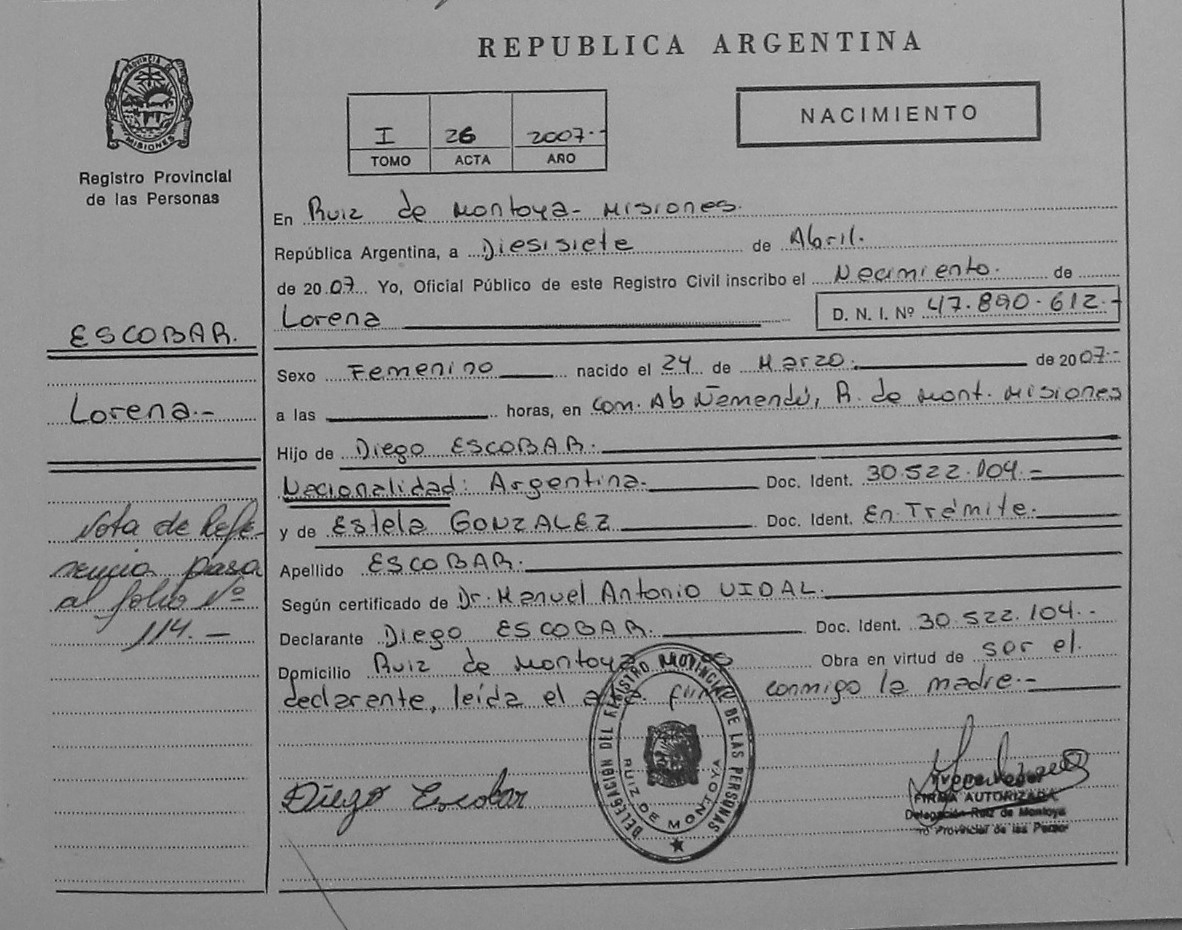 REPUBLICA ARGENTINA
PROVINCIA DE
MISIONES
Registro Provincial
de las Personas
I 26 2007.-
TOMO ACTA AÑO
NACIMIENTO
En Ruiz de Montoya- Misiones.
República Argentina, a Diesisiete de Abril.
de 2007 Yo, Oficial Público de este Registro Civil inscribo el Nacimiento. de
Lorena D. N. I. Nº 47.890.612.-
ESCOBAR.
Lorena.-
Sexo Femenino nacido el 24 de Marzo. de 2007.-
a las horas, en Com. Ab Ñemendú, R. de Mont. Misiones
Hijo de Diego ESCOBAR.
Nacionalidad: Argentina. Doc. Ident. 30.522.104.-
y de Estela GONZALEZ Doc. Ident. En Trámite.
Apellido ESCOBAR.
Según certificado de Dr. Manuel Antonio VIDAL.
Declarante Diego ESCOBAR. Doc. Ident. 30.522.104.-
Domicilio Ruiz de Montoya Obra en virtud de ser el
declarante, leída el acta firma conmigo la madre.-
Nota de Refe-
rencia pasa
al folio Nº
114.-
Diego Escobar
DELEGACIÓN DEL REGISTRO PROVINCIAL DE LAS PERSONAS
RUIZ DE MONTOYA
FIRMA AUTORIZADA
Delegación Ruiz de Montoya
Provincial de las Person